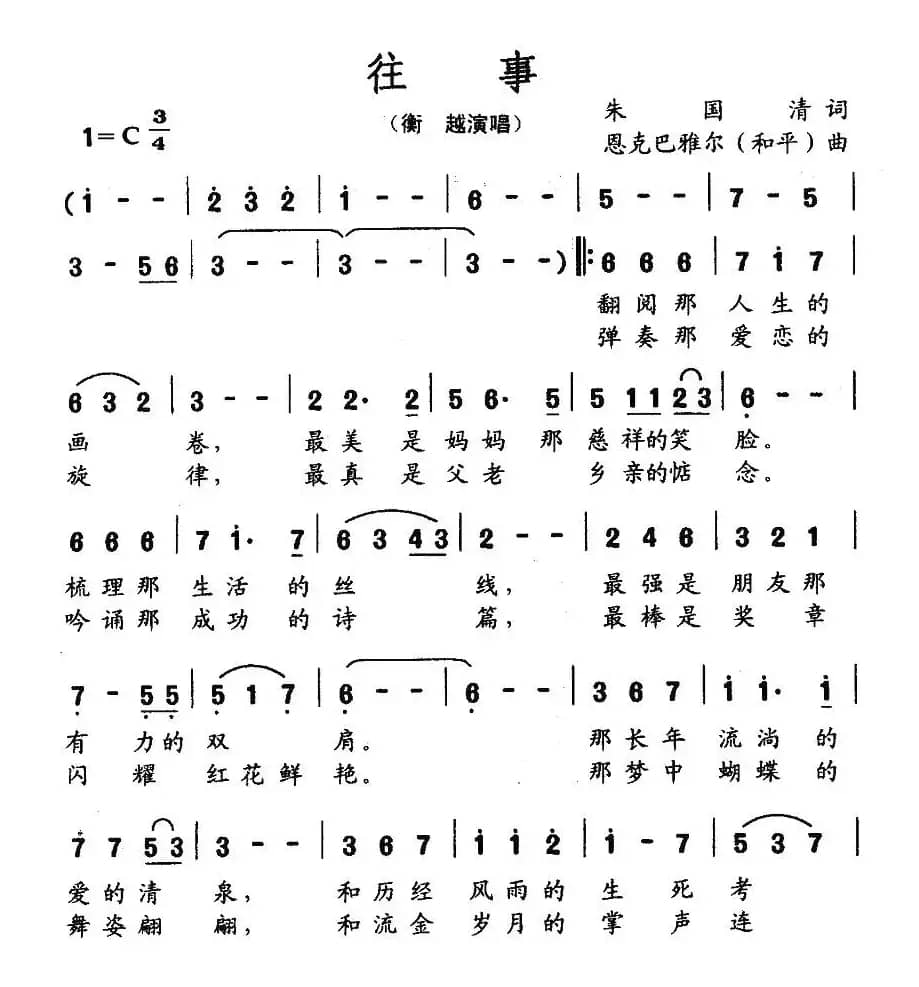 往 事
（衡 越演唱）
1=C 3/4
朱 国 清 词
恩克巴雅尔（和平）曲
(i - - | 2̇ 3̇ 2̇ | i - - | 6 - - | 5 - - | 7 - 5 |
3 - 5 6 | 3 - - | 3 - - | 3 - - ) ‖: 6 6 6 | 7 i 7 |
翻 阅 那 人 生 的
弹 奏 那 爱 恋 的
6 3 2 | 3 - - | 2 2· 2 | 5 6· 5 | 5 1 1 2 3 | 6̣ - - |
画 卷， 最 美 是 妈 妈 那 慈 祥 的 笑 脸。
旋 律， 最 真 是 父 老 乡 亲 的 惦 念。
6 6 6 | 7 i· 7 | 6 3 4 3 | 2 - - | 2 4 6 | 3 2 1 |
梳 理 那 生 活 的 丝 线， 最 强 是 朋 友 那
吟 诵 那 成 功 的 诗 篇， 最 棒 是 奖 章
7̣ - 5̣ 5̣ | 5̣ 1 7̣ | 6̣ - - | 6̣ - - | 3 6 7 | i i· i |
有 力 的 双 肩。 那 长 年 流 淌 的
闪 耀 红 花 鲜 艳。 那 梦 中 蝴 蝶 的
7 7 5 3 | 3 - - | 3 6 7 | i i 2̇ | i - 7 | 5 3 7 |
爱 的 清 泉， 和 历 经 风 雨 的 生 死 考
舞 姿 翩 翩， 和 流 金 岁 月 的 掌 声 连